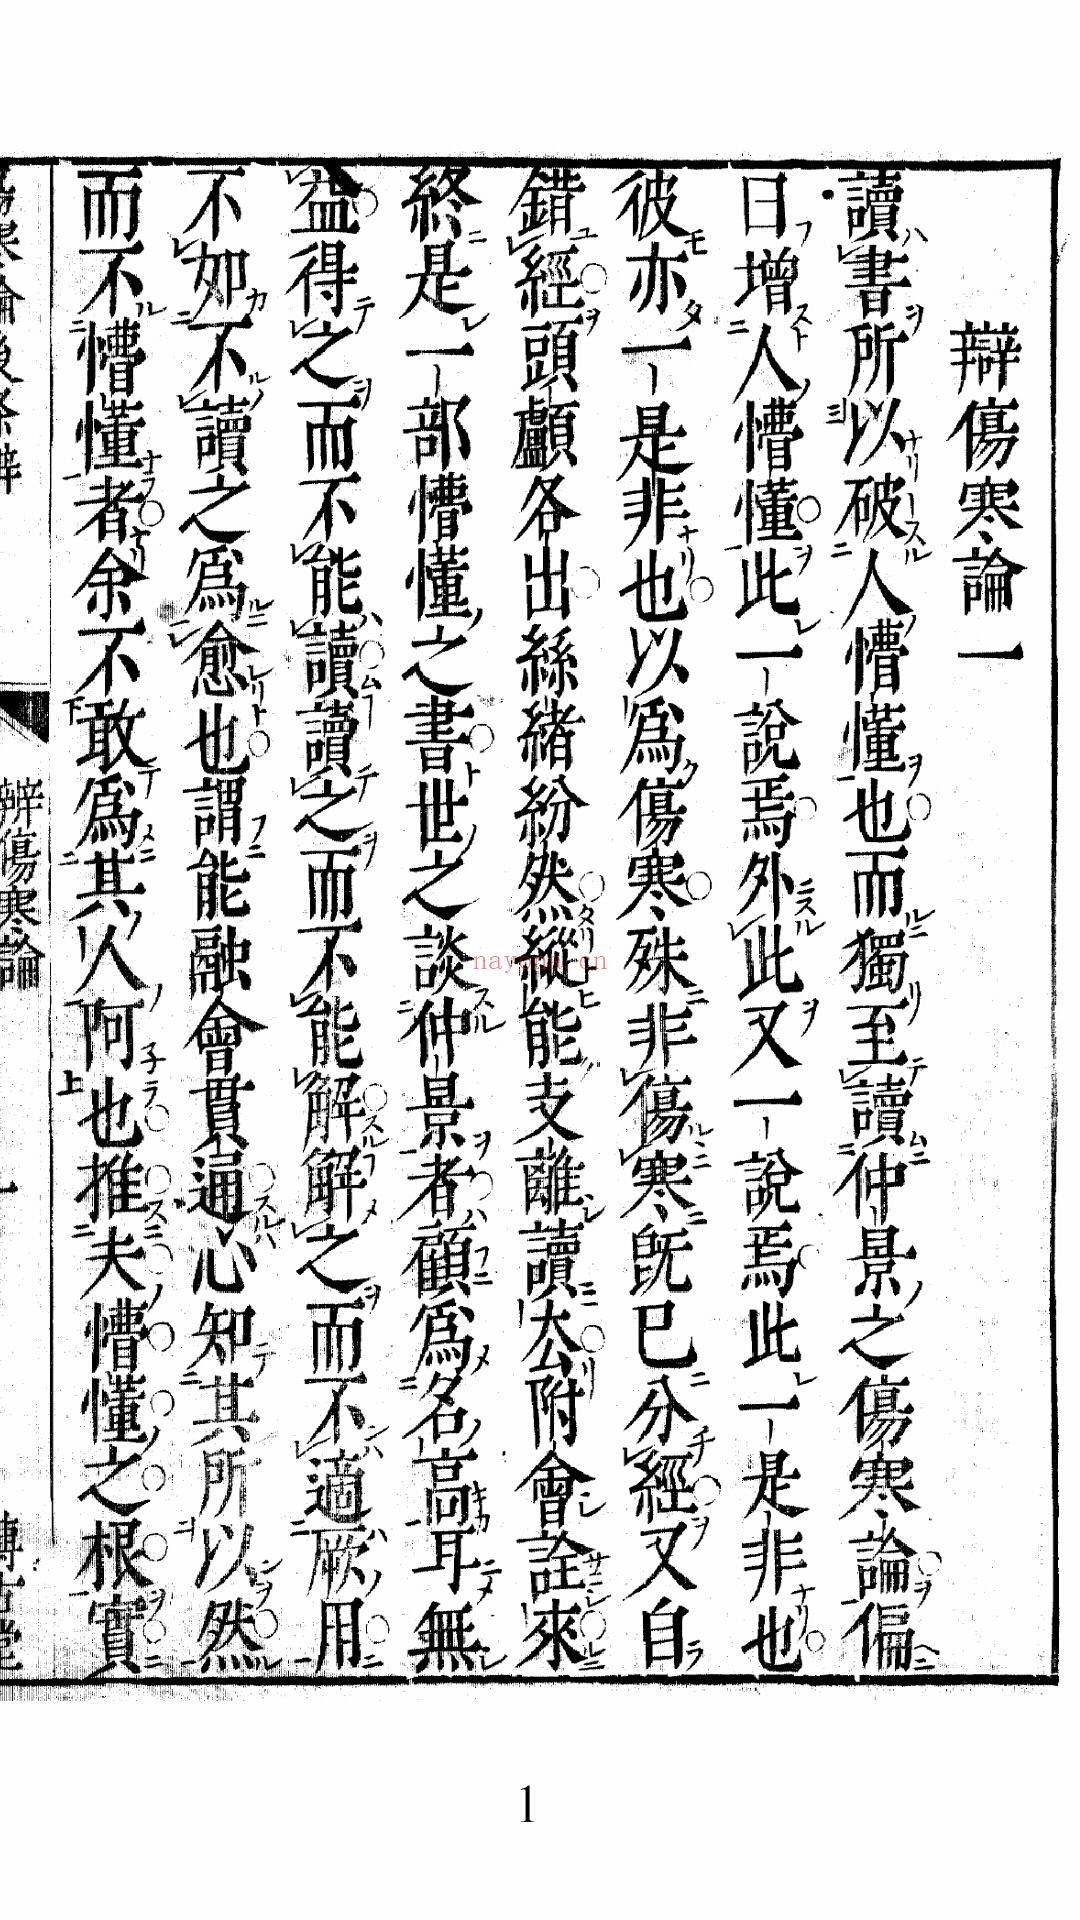 辯傷寒論一
讀書所以破人懵懂也而獨至讀仲景之傷寒論偏
日增人懵懂此一說焉外此又一說焉此一是非也
彼亦一是非也以爲傷寒殊非傷寒旣已分經又自
錯經頭顱各出絲緒紛然縱能支離讀去附會詮來
終是一部懵懂之書世之談仲景者顧爲名高耳無
益得之而不能讀讀之而不能解解之而不適厥用
不如不讀之爲愈也謂能融會貫通心知其所以然
而不懵懂者余不敢爲其人阿也推夫懵懂之根實
辨傷寒論
nayona.cn
1